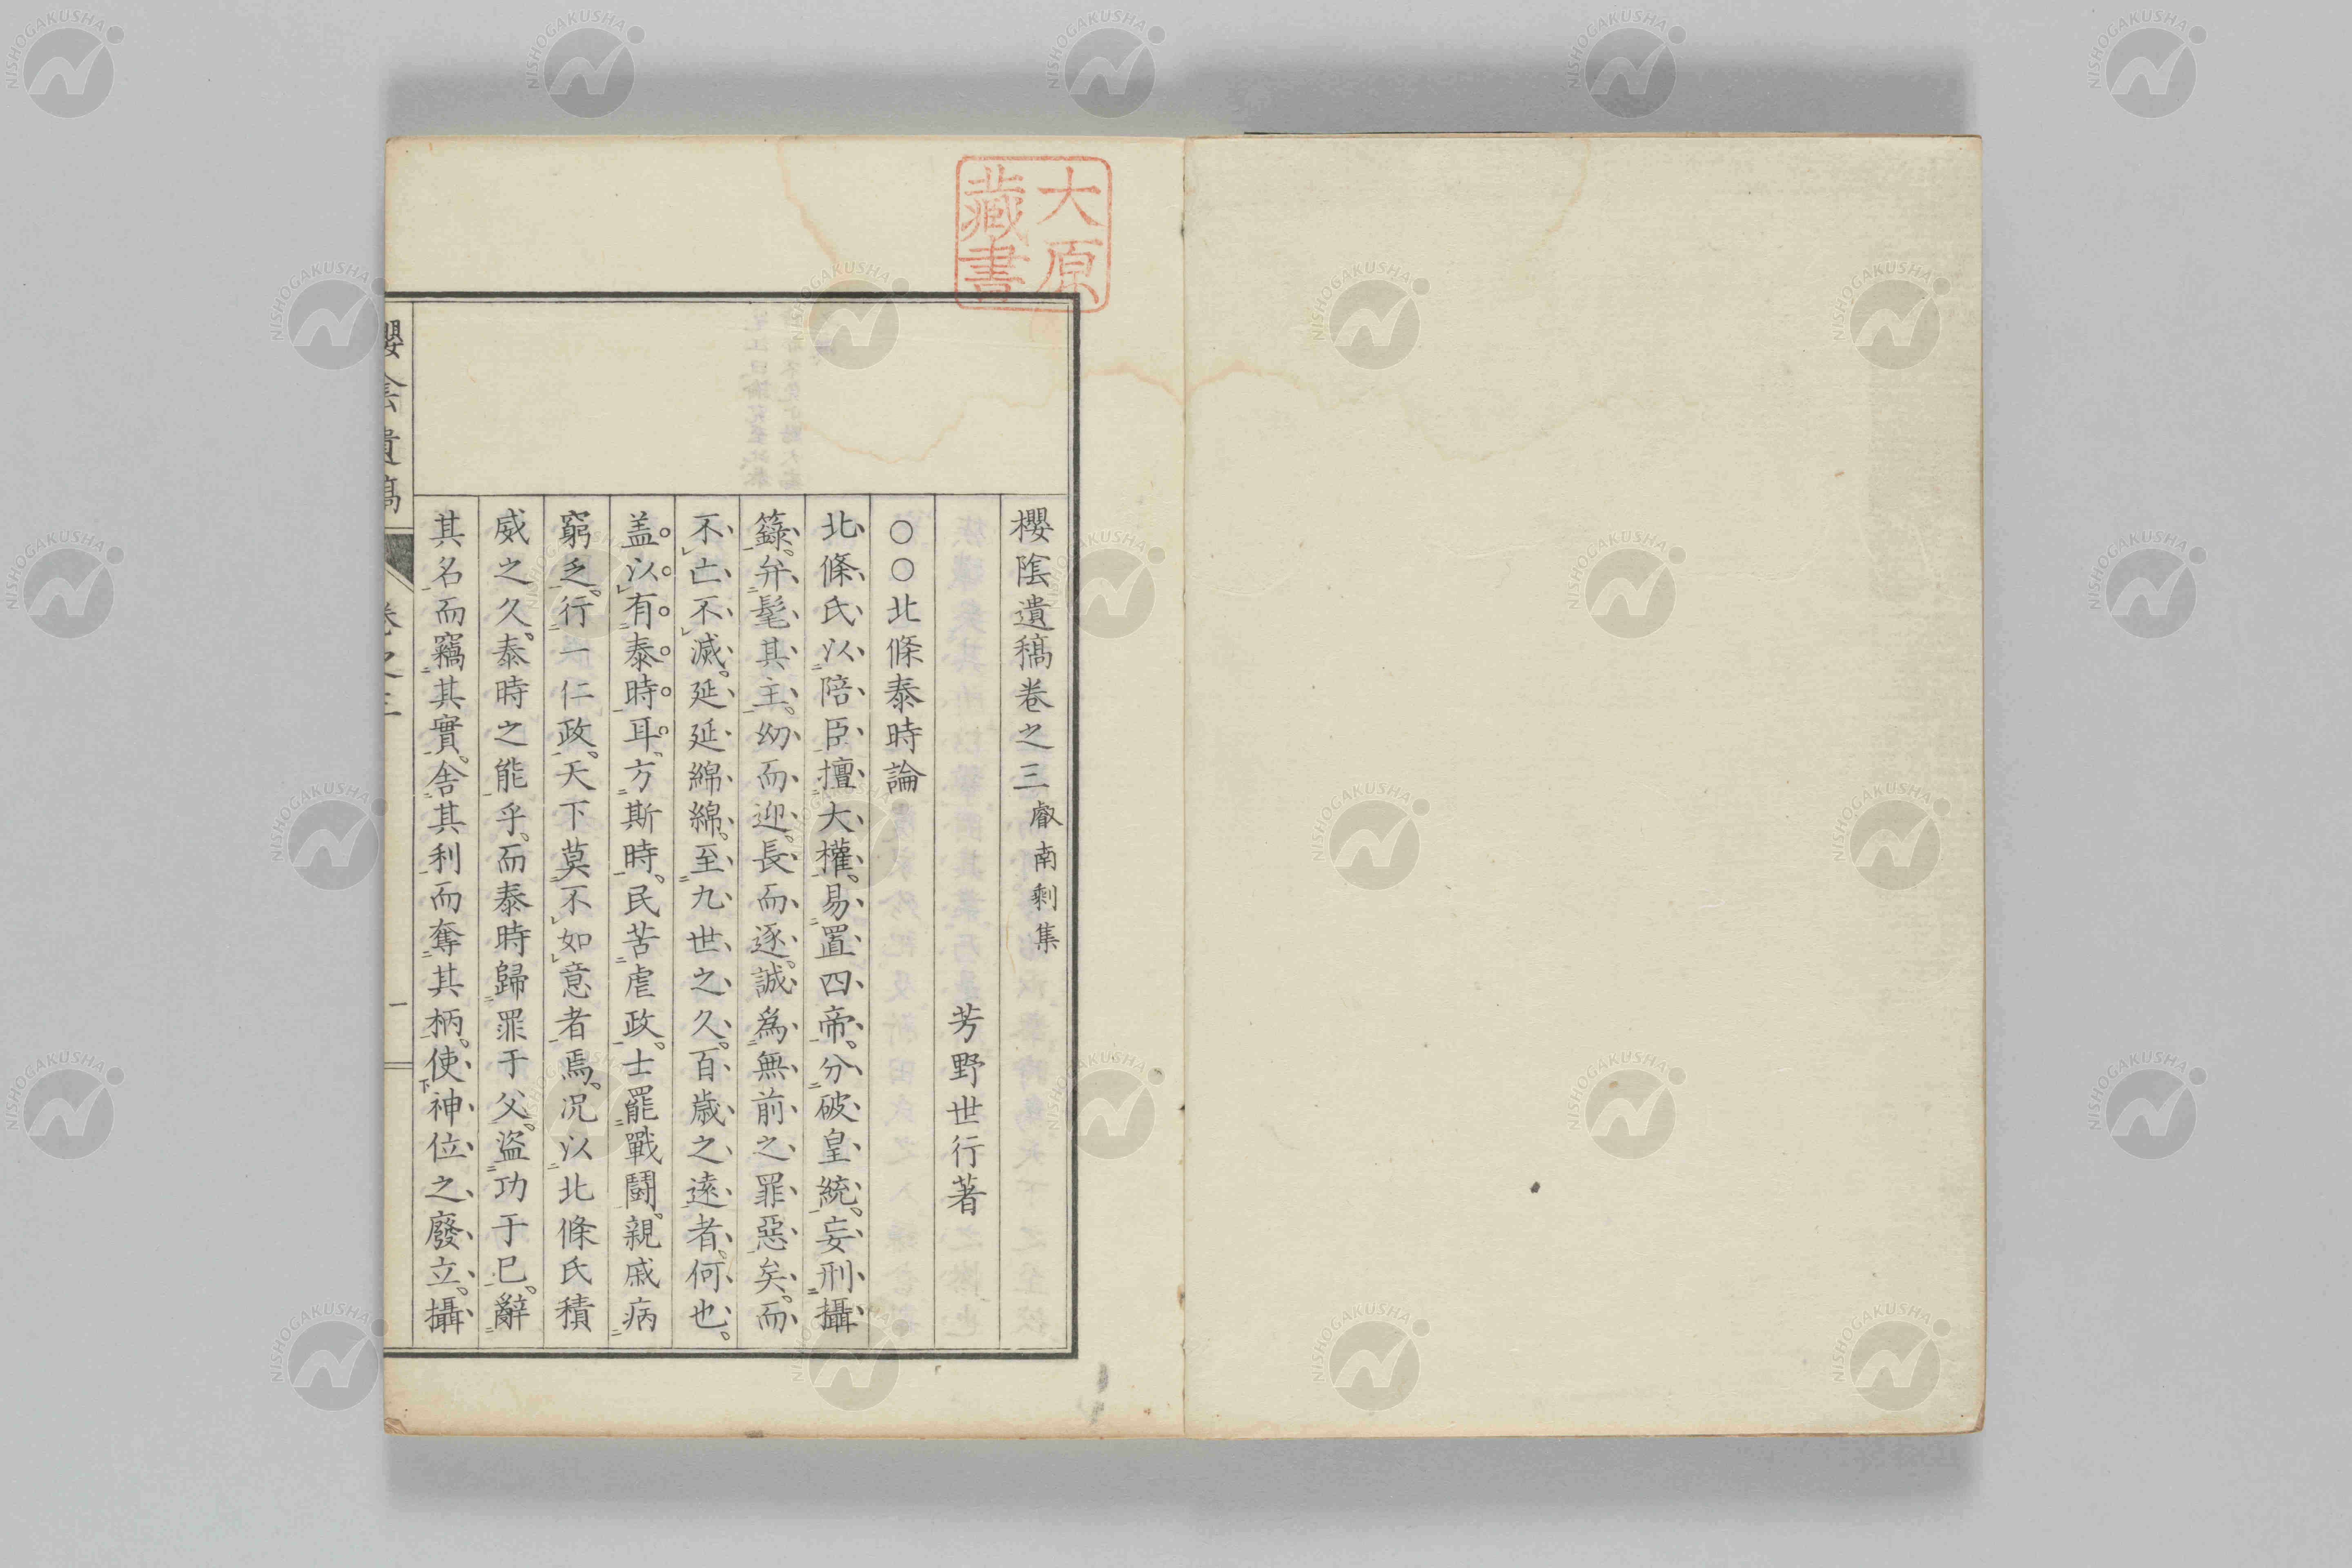 大原
藏書
櫻陰遺稿卷之三 叡南剩集
芳野世行著
○○北條泰時論
北條氏以陪臣擅大權。易置四帝。分破皇統。妄刑攝
籙。弁髦其主。幼而迎。長而逐。誠爲無前之罪惡矣。而
不亡不滅。延延綿綿。至九世之久。百歲之遠者。何也。
盖以有泰時耳。方斯時。民苦虐政。士罷戰鬪。親戚病
窮乏。行一仁政。天下莫不如意者焉。况以北條氏積
威之久。泰時之能乎。而泰時歸罪于父。盜功于已。辭
其名而竊其實。舍其利而奪其柄。使神位之廢立。攝
櫻陰遺稿 卷之三 一